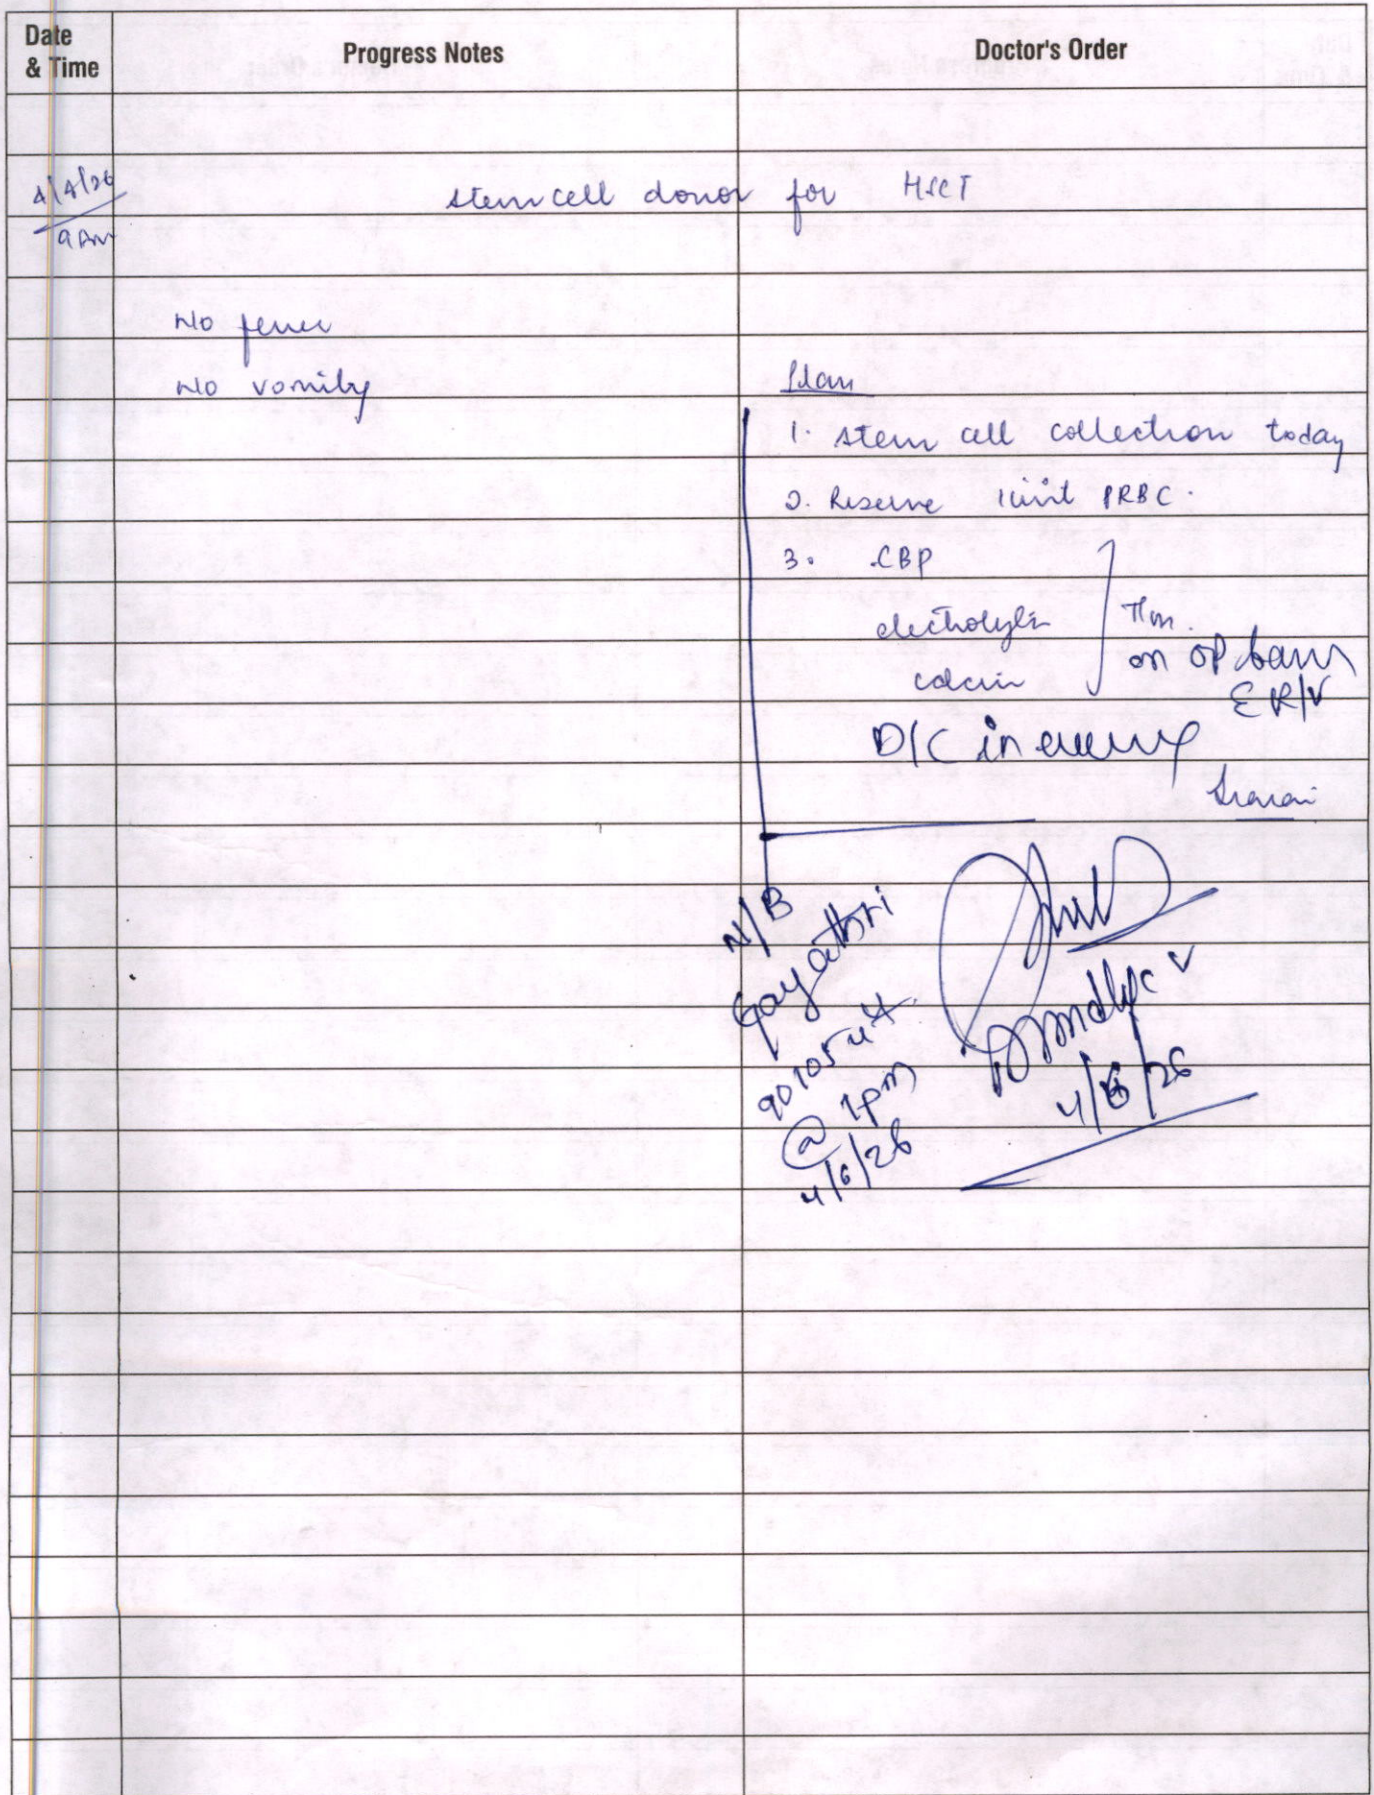 Date & Time
Progress Notes
Doctor's Order
4/4/26
9 Am
stem cell donor for HSCT
No fever
No vomiting
Plan
1. stem cell collection today
2. Reserve 1 unit PRBC.
3. CBP
electrolytes
calcium
on OP basis
R/V
D/C in evening
N/B
Gayathri
@ 1pm
4/6/26